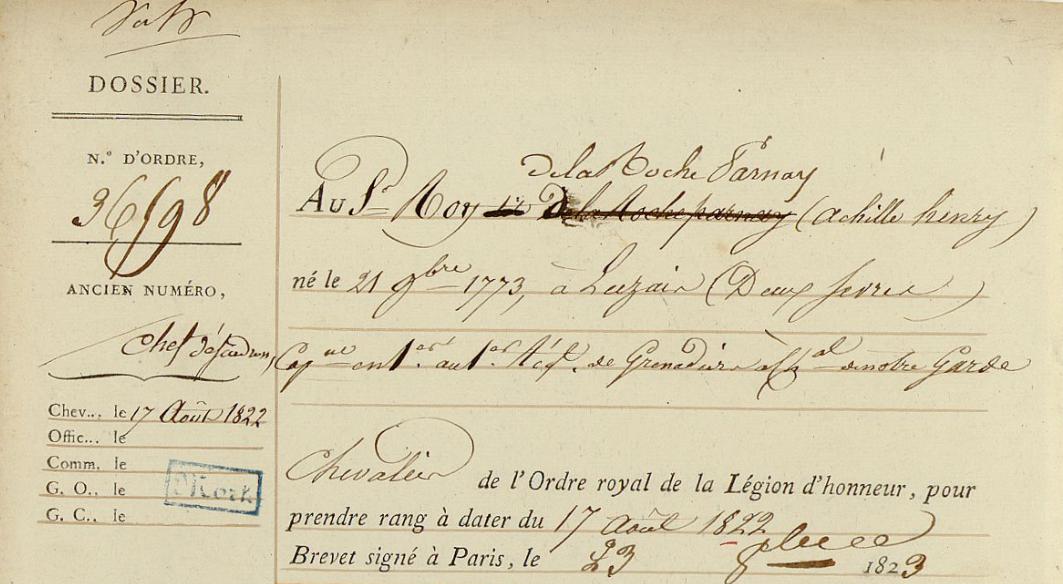 DOSSIER.
N.º D'ORDRE,
36598
ANCIEN NUMÉRO,
Chev... le 17 Août 1822
Offic... le
Comm. le
G. O., le
G. C., le
Mort
de la Roche Parnay
Au Sr Roy de la Roche parnay (achille henry)
né le 21 9bre 1773, à Luzais (Deux Sevres)
Chef d'Escadron, Capne en 1er au 1er Régt. de Grenadiers à chal de notre Garde
Chevalier de l'Ordre royal de la Légion d'honneur, pour
prendre rang à dater du 17 août 1822
Brevet signé à Paris, le 23 1823